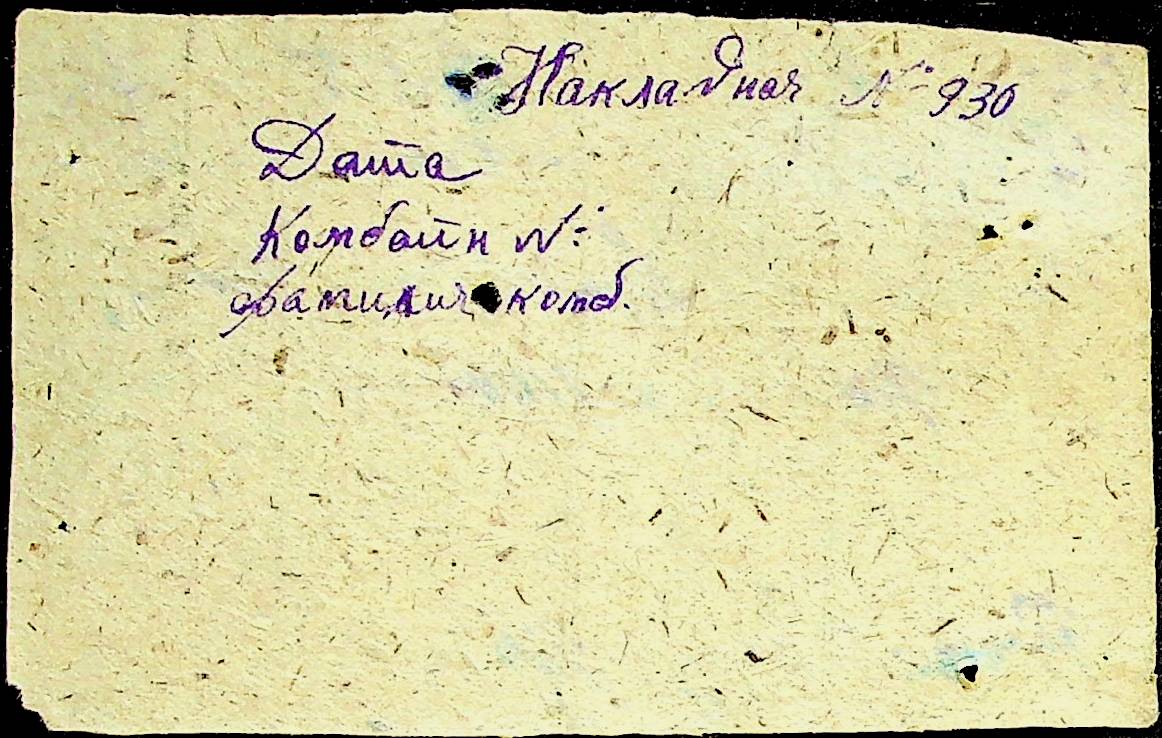 Накладная № 930
Дата
Комбайн №
фамилия комб.